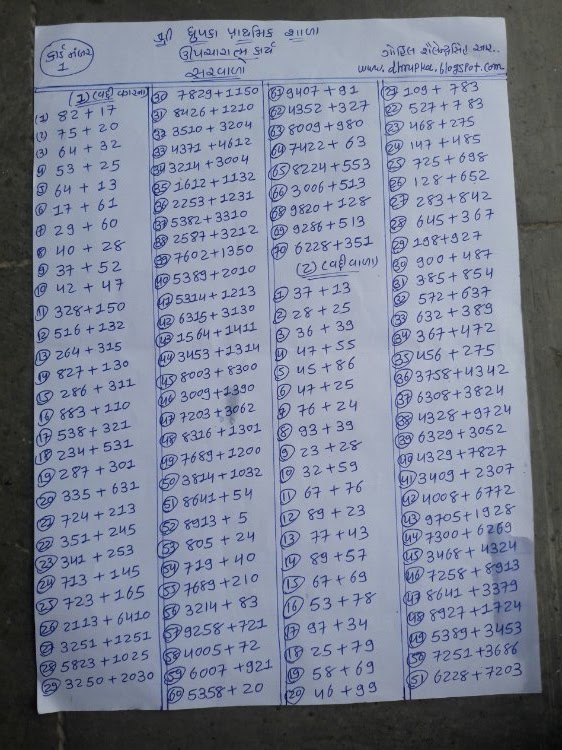 શ્રી ધુપકા પ્રાથમિક શાળા
ઉપચારાત્મ કાર્ય
ગોહિલ શૈલેન્દ્રસિંહ આર..
કાર્ડ નંબર
1
સરવાળા
www.dhrupka.blogspot.com
(1) (વદ્દી વગરના)
(1) 82 + 17
(2) 75 + 20
(3) 64 + 32
(4) 53 + 25
(5) 64 + 13
(6) 17 + 61
(7) 29 + 60
(8) 40 + 28
(9) 37 + 52
(10) 42 + 47
(11) 328 + 150
(12) 516 + 132
(13) 264 + 315
(14) 827 + 130
(15) 286 + 311
(16) 883 + 110
(17) 538 + 321
(18) 234 + 531
(19) 287 + 301
(20) 335 + 631
(21) 724 + 213
(22) 351 + 245
(23) 341 + 253
(24) 713 + 145
(25) 723 + 165
(26) 2113 + 6410
(27) 3251 + 1251
(28) 5823 + 1025
(29) 3250 + 2030
(30) 7829 + 1150
(31) 8426 + 1210
(32) 3510 + 3204
(33) 4371 + 4612
(34) 3214 + 3004
(35) 1612 + 1132
(36) 2253 + 1231
(37) 5382 + 3310
(38) 2587 + 3212
(39) 7602 + 1350
(40) 5389 + 2010
(41) 5314 + 1213
(42) 6315 + 3130
(43) 1564 + 1411
(44) 3453 + 1314
(45) 8003 + 8300
(46) 3009 + 1390
(47) 7203 + 3062
(48) 8316 + 1301
(49) 7689 + 1200
(50) 3814 + 1032
(51) 8641 + 54
(52) 8913 + 5
(53) 805 + 24
(54) 719 + 40
(55) 7689 + 210
(56) 3214 + 83
(57) 9258 + 721
(58) 4005 + 72
(59) 6007 + 921
(60) 5358 + 20
(61) 9407 + 91
(62) 4352 + 327
(63) 8009 + 980
(64) 7422 + 63
(65) 8224 + 553
(66) 3006 + 513
(68) 9820 + 128
(69) 9286 + 513
(70) 6228 + 351
(2) (વદ્દીવાળા)
(1) 37 + 13
(2) 28 + 25
(3) 36 + 39
(4) 47 + 55
(5) 45 + 86
(6) 47 + 25
(7) 76 + 24
(8) 93 + 39
(9) 23 + 28
(10) 32 + 59
(11) 67 + 76
(12) 89 + 23
(13) 77 + 43
(14) 89 + 57
(15) 67 + 69
(16) 53 + 78
(17) 97 + 34
(18) 25 + 79
(19) 58 + 69
(20) 46 + 99
(21) 109 + 783
(22) 527 + 783
(23) 468 + 275
(24) 147 + 485
(25) 725 + 698
(26) 128 + 652
(27) 283 + 842
(28) 645 + 367
(29) 198 + 927
(30) 900 + 487
(31) 385 + 854
(32) 572 + 637
(33) 632 + 389
(34) 367 + 472
(35) 456 + 275
(36) 3758 + 4342
(37) 6308 + 3824
(38) 4328 + 9724
(39) 6329 + 3052
(40) 4329 + 7827
(41) 3409 + 2307
(42) 4008 + 6772
(43) 9705 + 1928
(44) 7300 + 6269
(45) 3468 + 4324
(46) 7258 + 8913
(47) 8641 + 3379
(48) 8927 + 1724
(49) 5389 + 3453
(50) 7251 + 3686
(51) 6228 + 7203